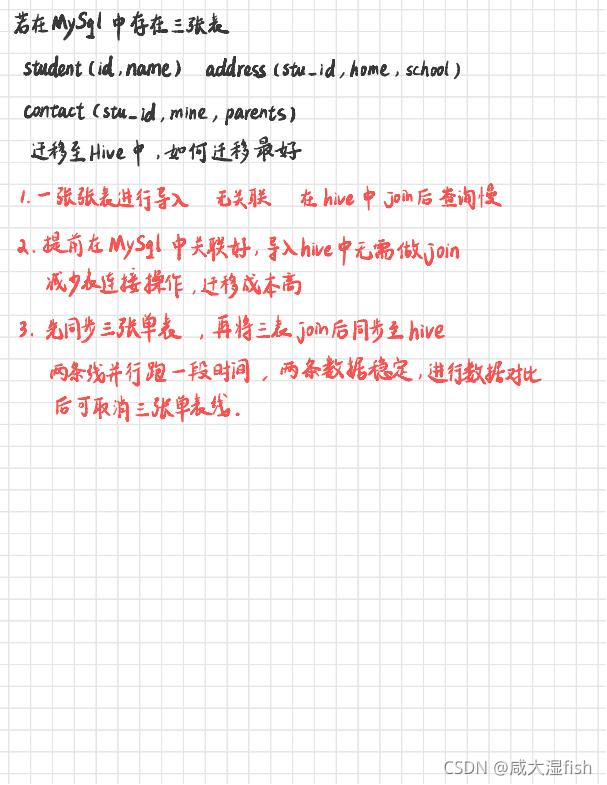 若在MySql中存在三张表
student(id,name) address(stu_id,home,school)
contact(stu_id,mine,parents)
迁移至Hive中,如何迁移最好
1.一张张表进行导入 无关联 在hive中join后查询慢
2.提前在MySql中关联好,导入hive中无需做join
减少表连接操作,迁移成本高
3.先同步三张单表,再将三表join后同步至hive
两条线并行跑一段时间,两条数据稳定,进行数据对比
后可取消三张单表线.
CSDN @咸大湿fish